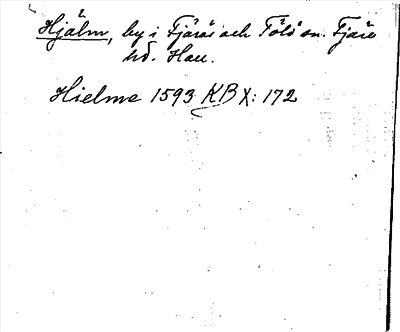 Hjälm, by i Fjärås och Tölö sn. Fjäre
hd. Hall.
Hielme 1593 KB X: 172